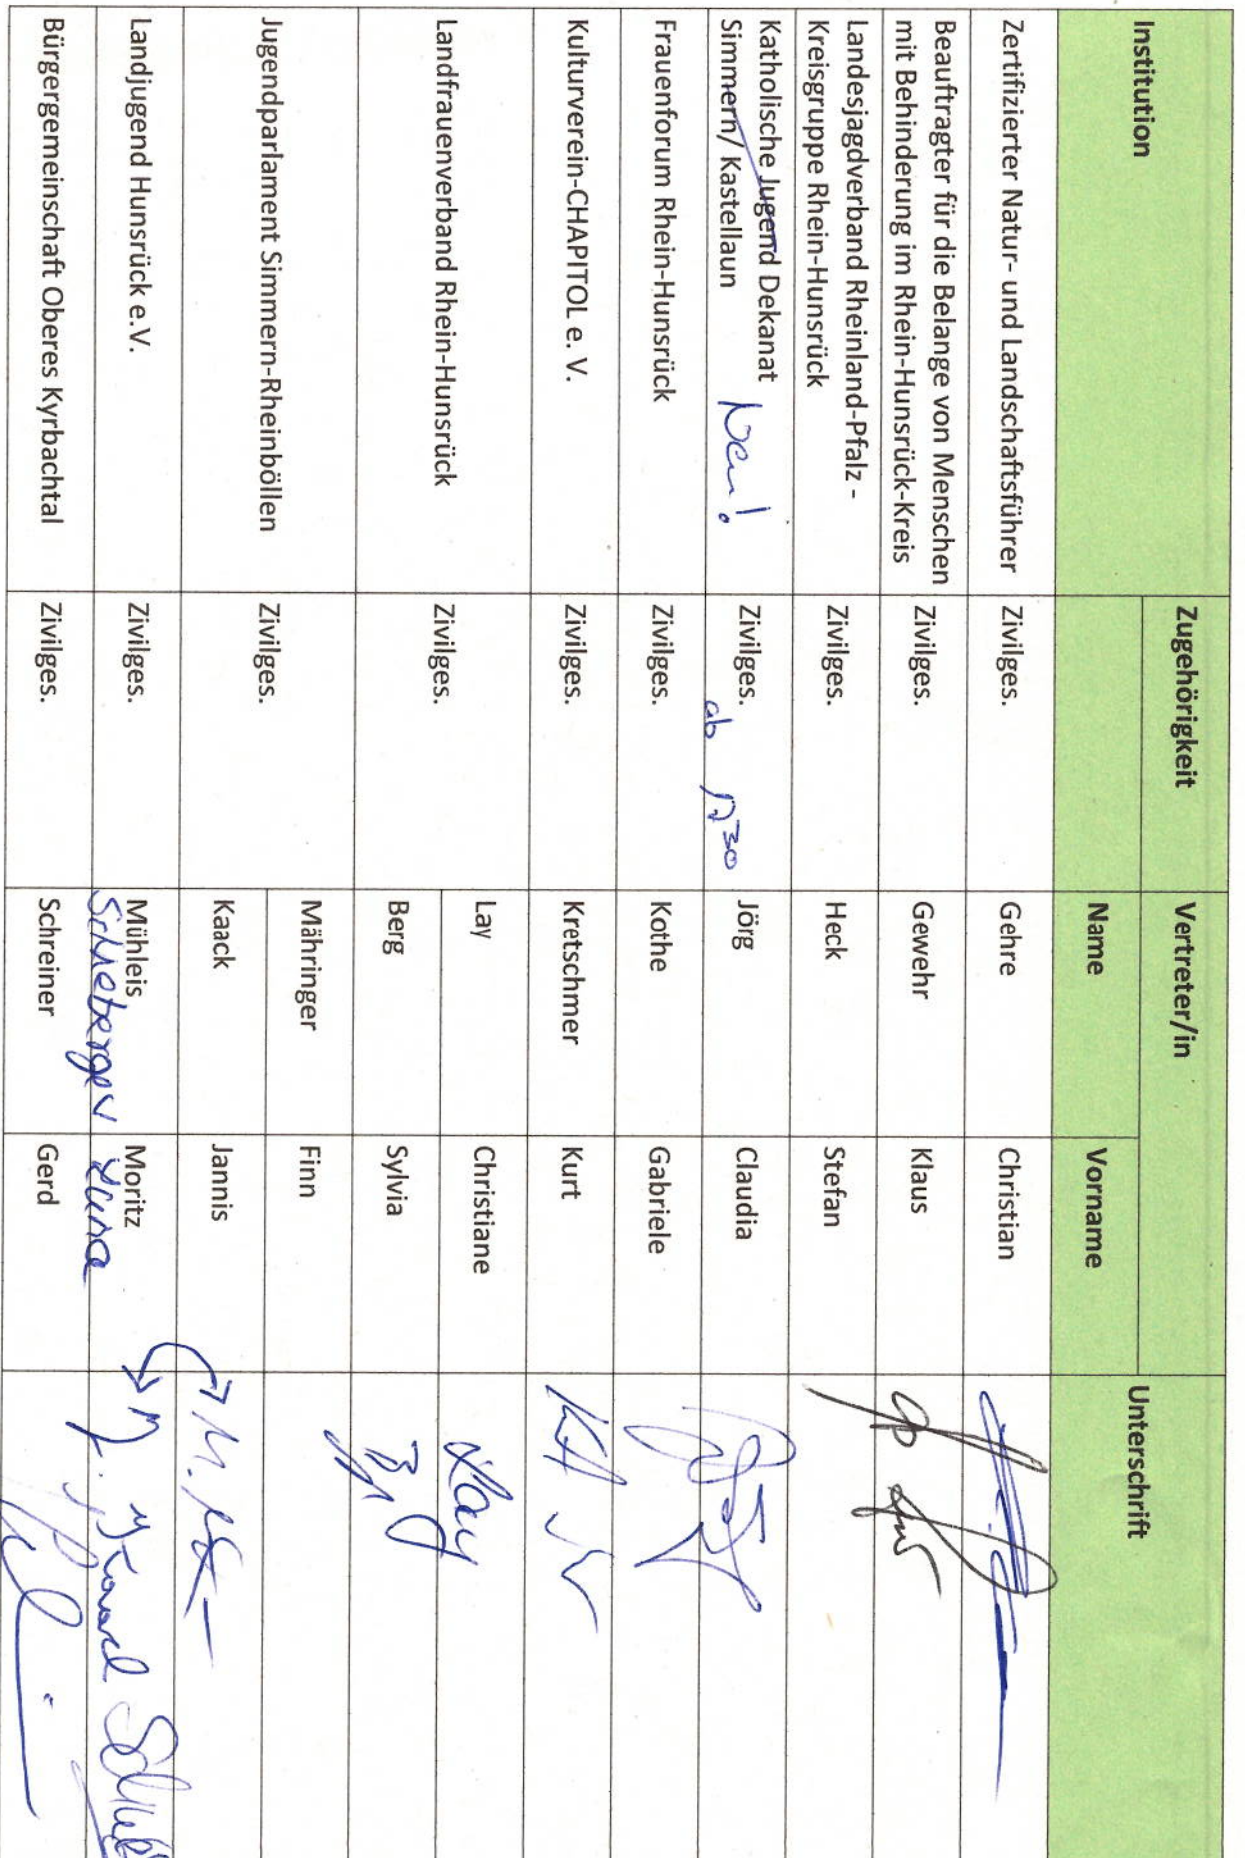 Institution Zugehörigkeit Vertreter/in Unterschrift
Name Vorname
Zertifizierter Natur- und Landschaftsführer Zivilges. Gehre Christian
Beauftragter für die Belange von Menschen
mit Behinderung im Rhein-Hunsrück-Kreis Zivilges. Gewehr Klaus
Landesjagdverband Rheinland-Pfalz -
Kreisgruppe Rhein-Hunsrück Zivilges. Heck Stefan
Katholische Jugend Dekanat
Simmern/ Kastellaun Nein! Zivilges. ab 1730 Jörg Claudia
Frauenforum Rhein-Hunsrück Zivilges. Kothe Gabriele
Kulturverein-CHAPITOL e. V. Zivilges. Kretschmer Kurt
Landfrauenverband Rhein-Hunsrück Zivilges. Lay Christiane Lay
Berg Sylvia
Jugendparlament Simmern-Rheinböllen Zivilges. Mähringer Finn
Kaack Jannis
Landjugend Hunsrück e.V. Zivilges. Mühleis Moritz
Bürgergemeinschaft Oberes Kyrbachtal Zivilges. Schreiner Gerd